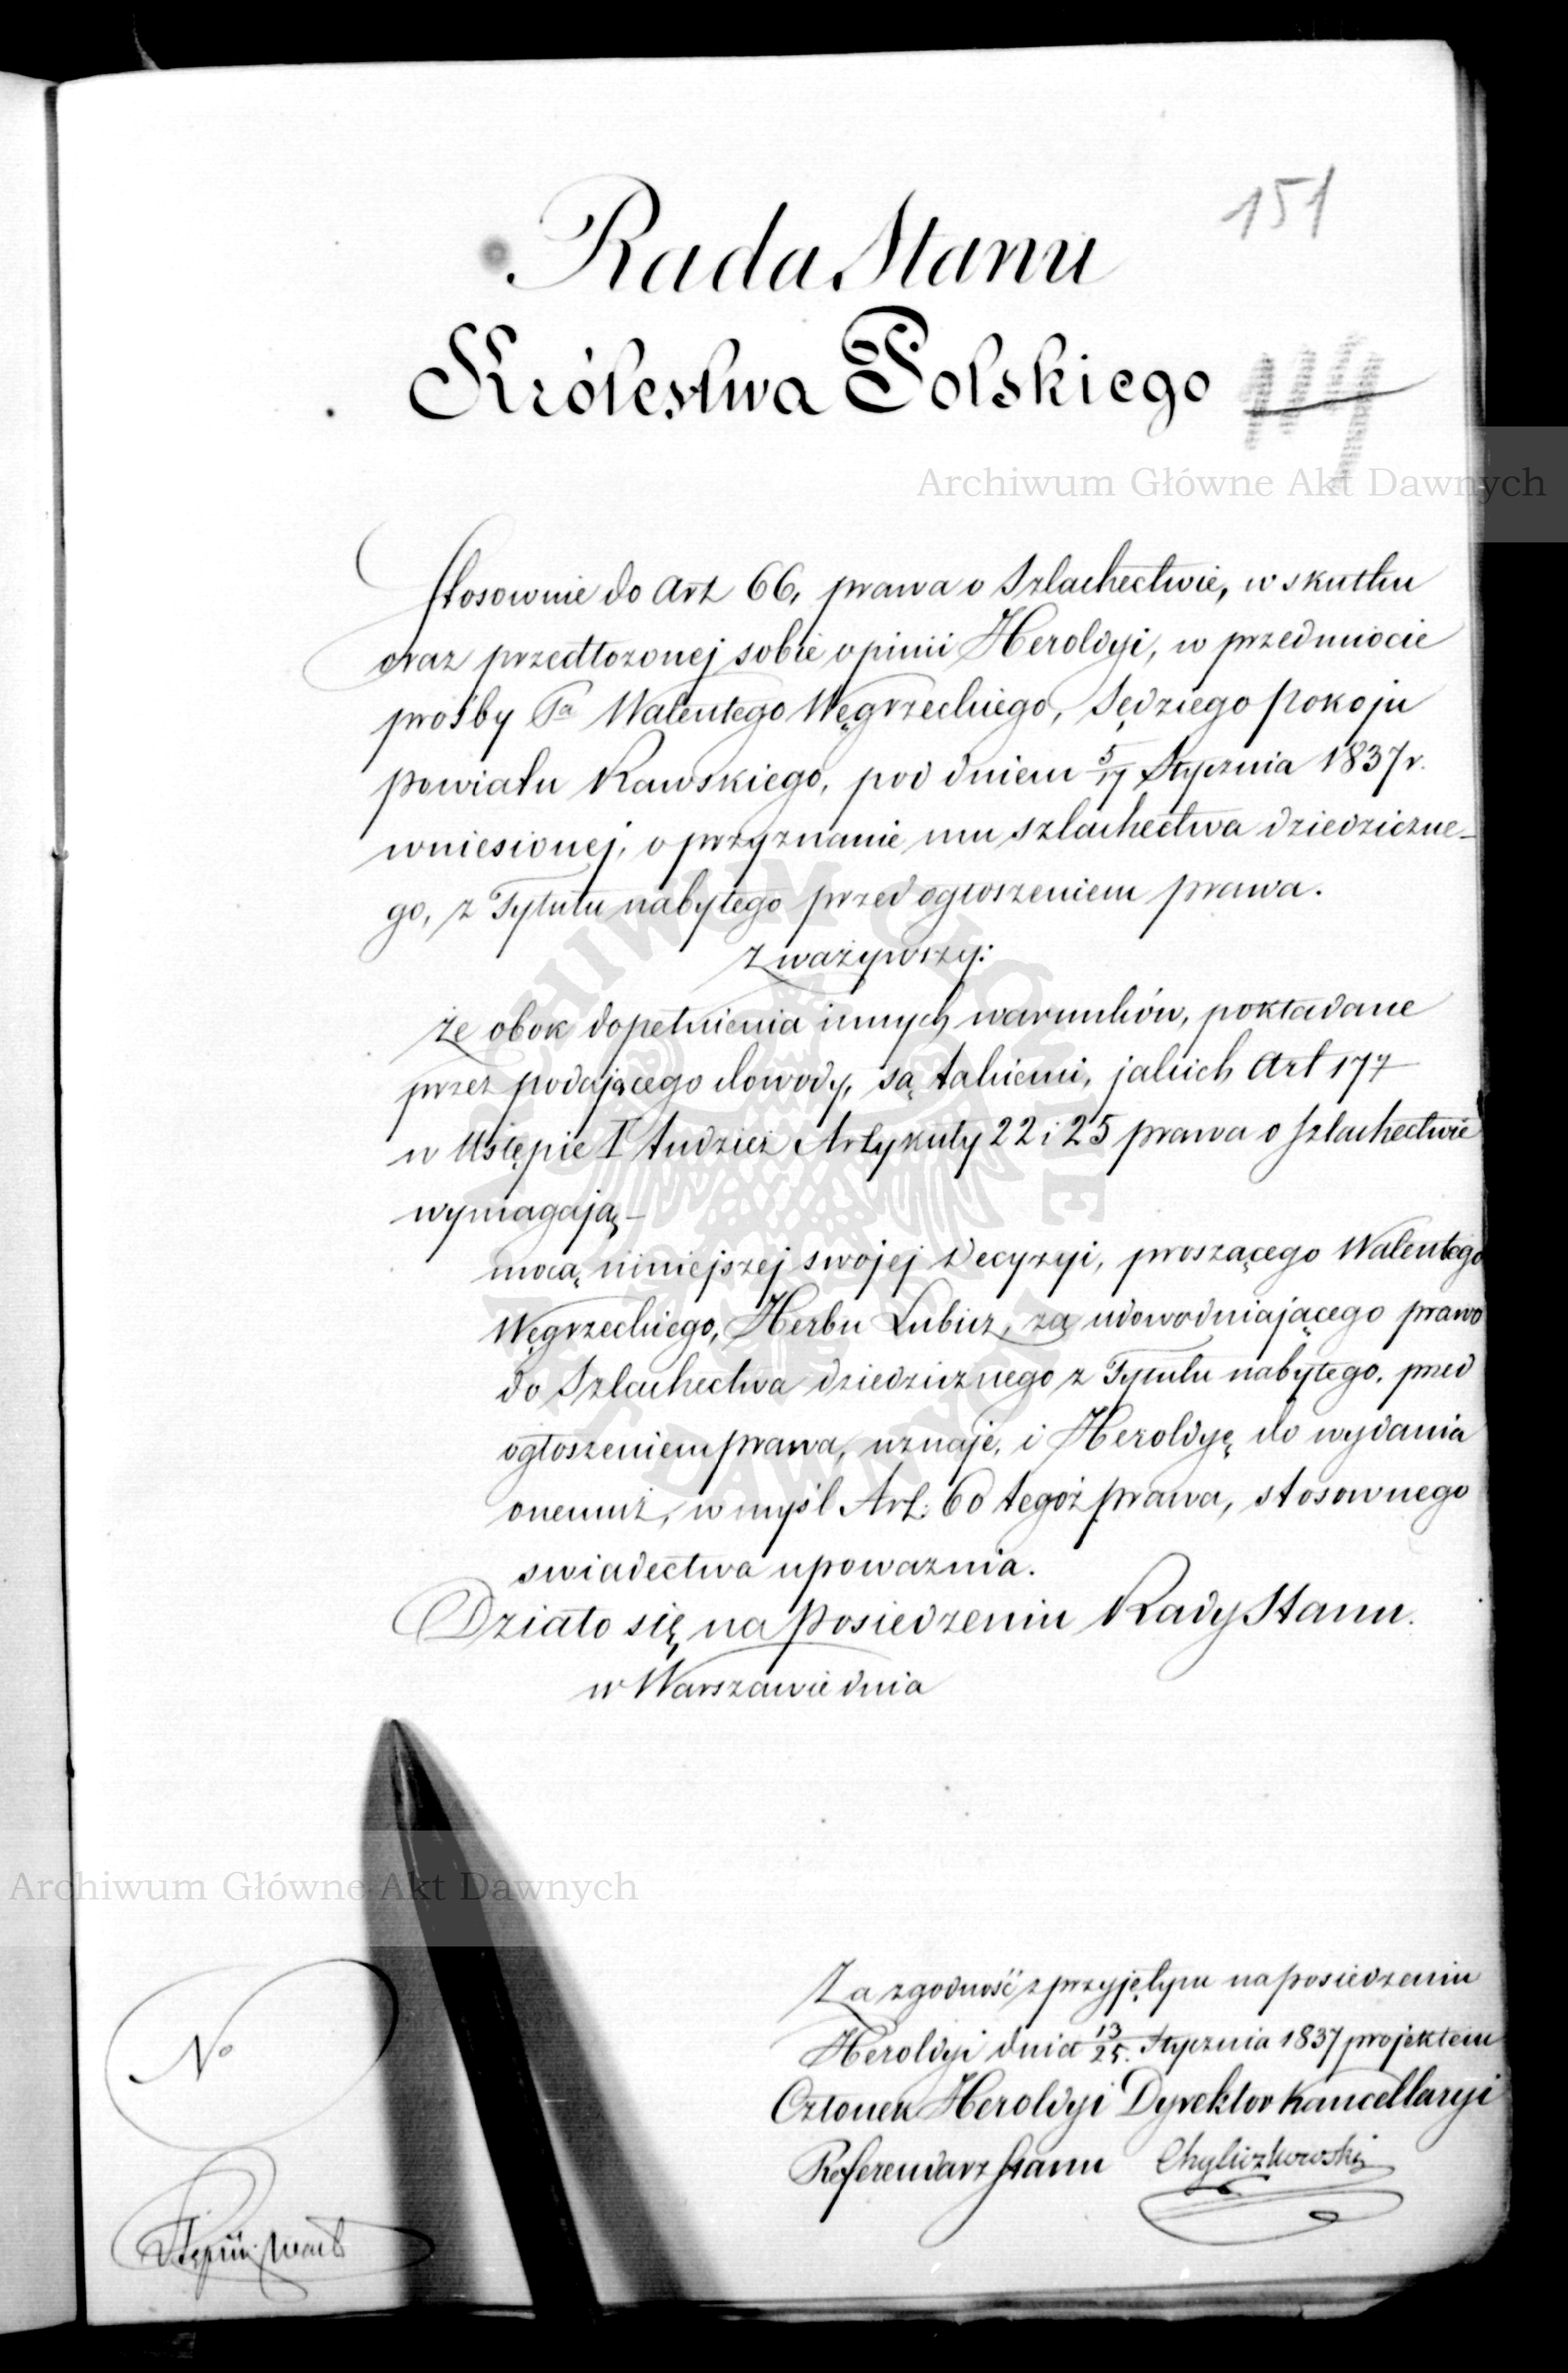 151
Rada Stanu
Królestwa Polskiego
114
Archiwum Główne Akt Dawnych
Stosownie do Art 66, prawa o Szlachectwie, w skutku
oraz przedłożonej sobie opinii Heroldyi, w przedmiocie
prośby Pa Walentego Węgrzeckiego, Sędziego Pokoju
Powiatu Rawskiego, pod dniem 5/17 Stycznia 1837 r.
wniesionej, o przyznanie mu szlachectwa dziedziczne-
go, z Tytułu nabytego przed ogłoszeniem prawa.
Zważywszy:
że obok dopełnienia innych warunków, pokładane
przez podającego dowody, są takiemi, jakich Art 177
w Ustępie I tudzież Artykuły 22 i 25 prawa o Szlachectwie
wymagają—
mocą niniejszej swojej Decyzyi, proszącego Walentego
Węgrzeckiego, Herbu Lubicz, za udowodniającego prawo
do Szlachectwa dziedzicznego z Tytułu nabytego, przed
ogłoszeniem prawa, uznaje, i Heroldyę do wydania
onemuż, w myśl Art: 60 tegoż prawa, stosownego
swiadectwa upoważnia.
Działo się na Posiedzeniu Rady Stanu.
w Warszawie dnia
Archiwum Główne Akt Dawnych
Za zgodność z przyjętym na posiedzeniu
Heroldyi dnia 13/25. Stycznia 1837 projektem
Członek Heroldyi Dyrektor Kancellaryi
Referendarz Stanu Chyliczkowski
No
ARCHIWUM GŁÓWNE
AKT DAWNYCH